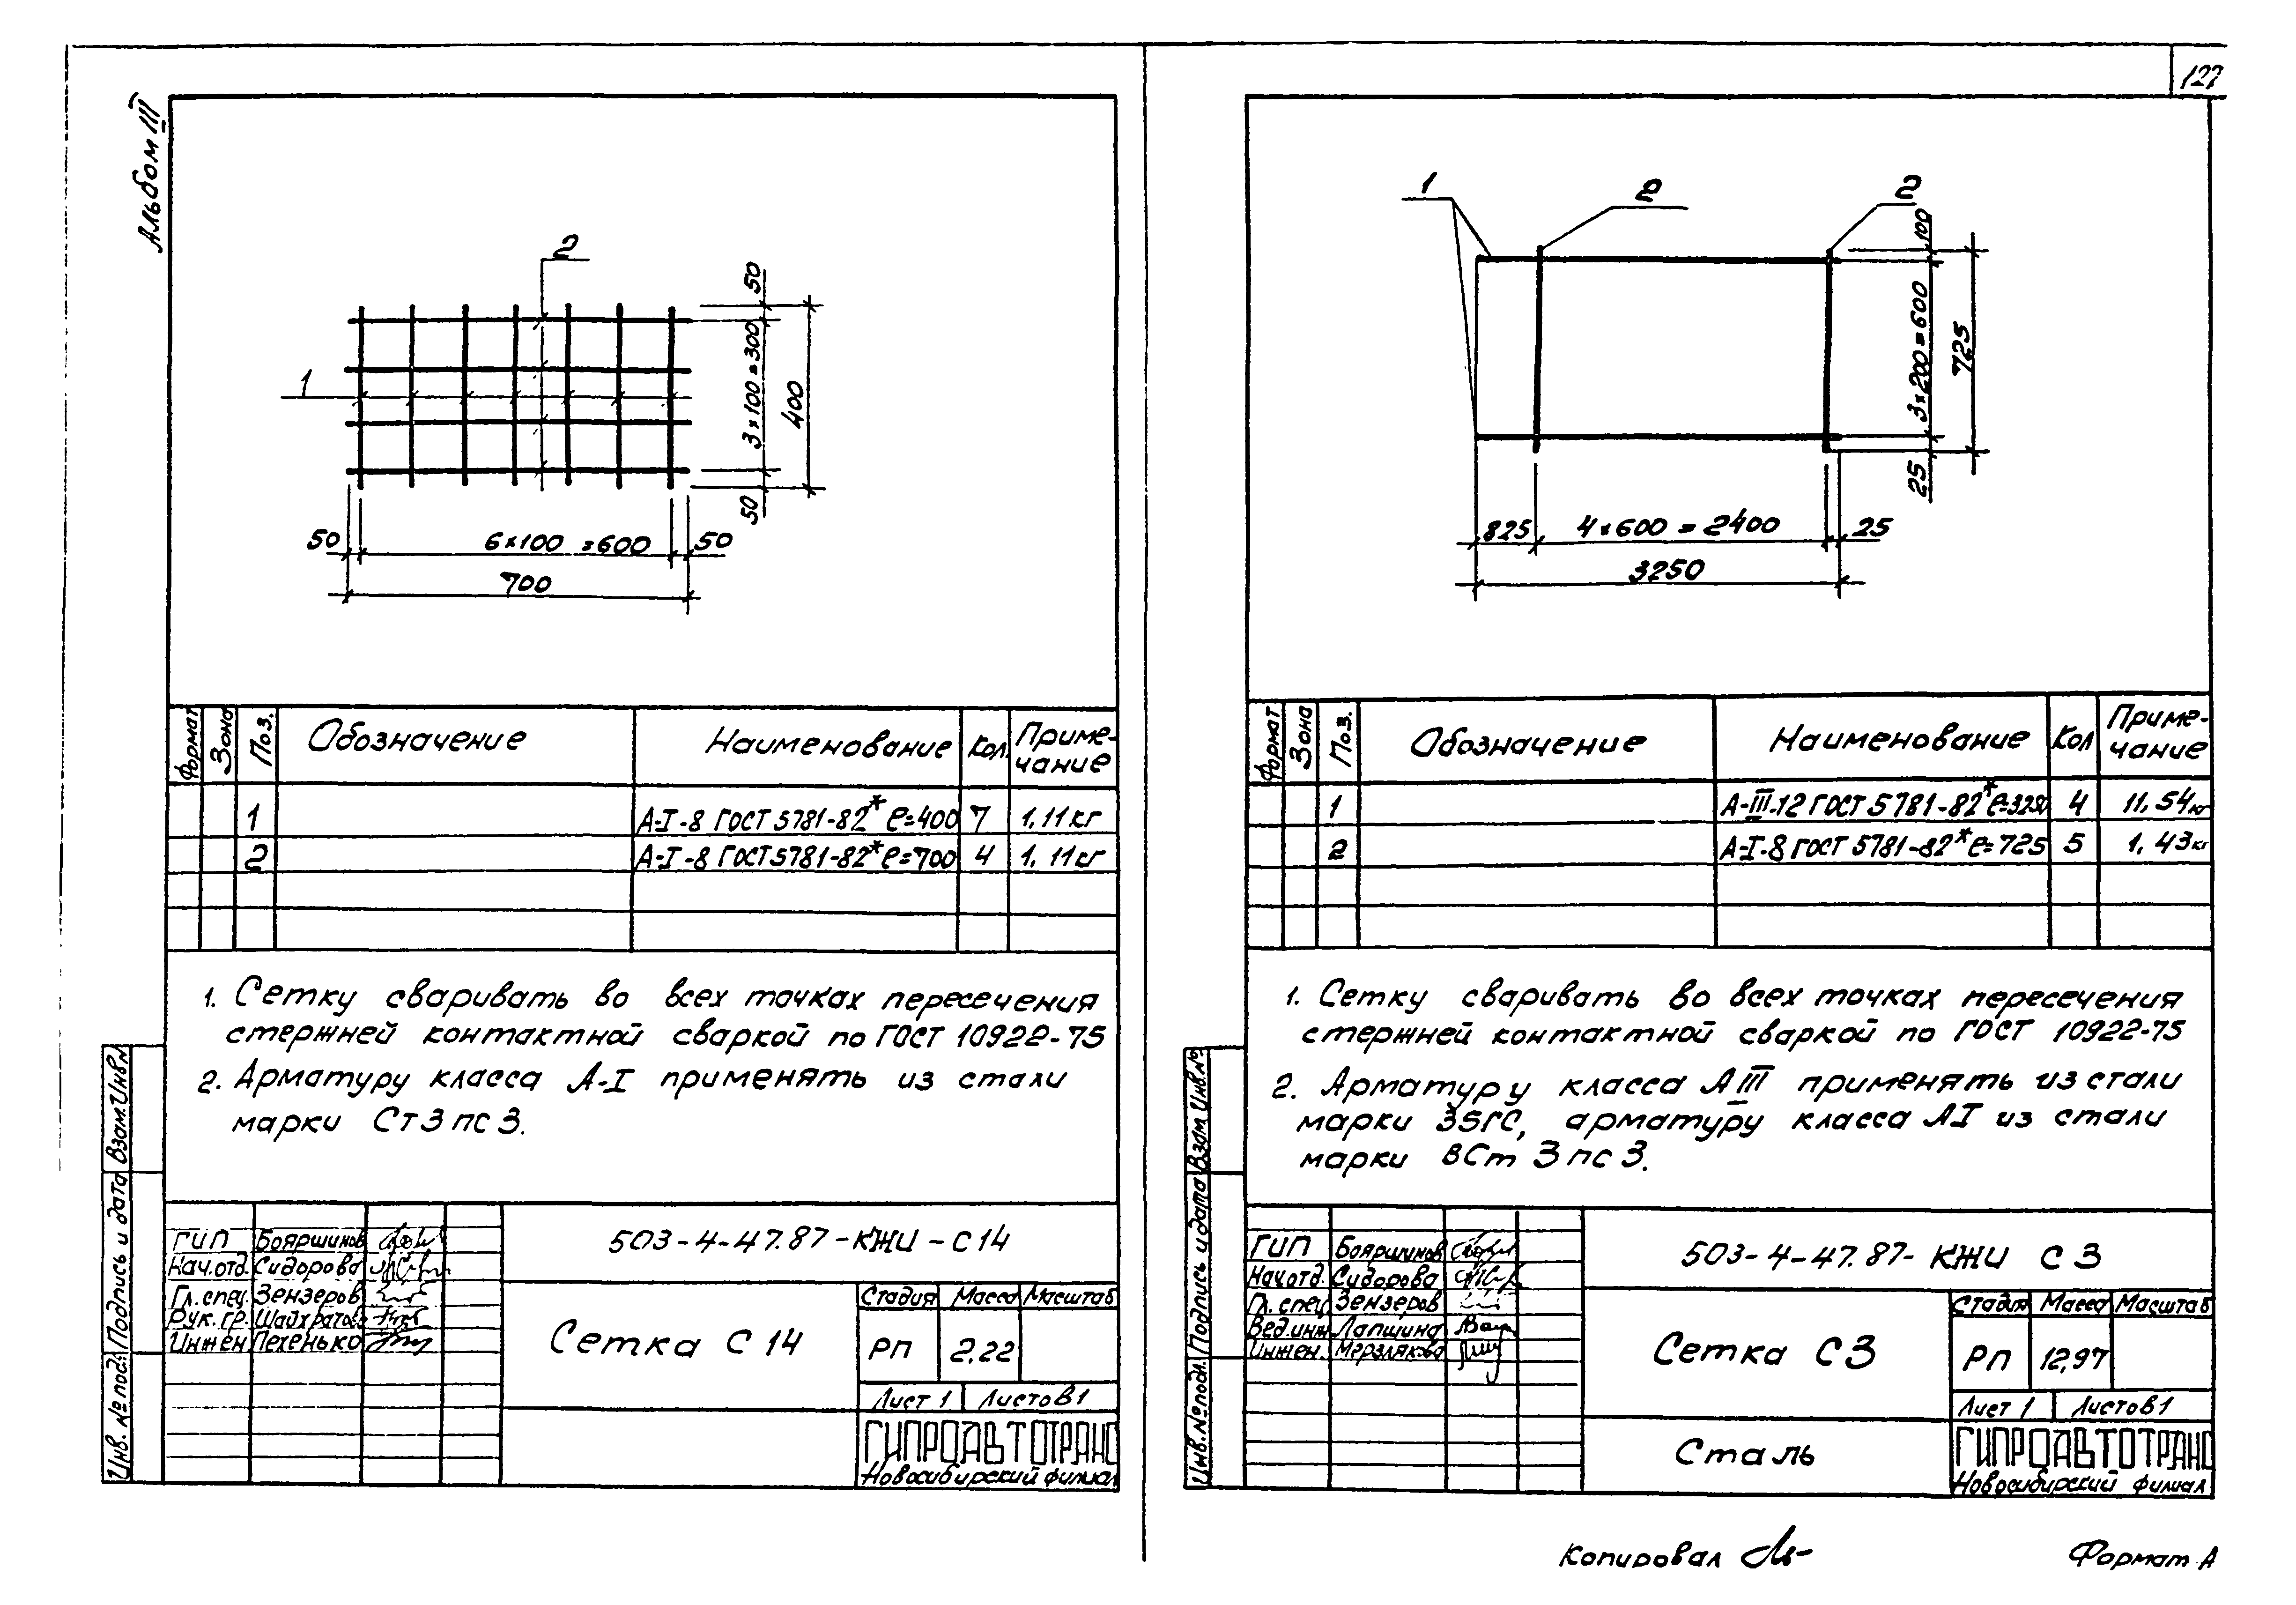 127
Альбом III
2
1
50
3×100=300
400
50
50
6×100=600
50
700
Формат
Зона
Поз.
Обозначение
Наименование
Кол.
Приме-
чание
1 А-I-8 ГОСТ 5781-82* ℓ=400 7 1,11кг
2 А-I-8 ГОСТ 5781-82* ℓ=700 4 1,11кг
1. Сетку сваривать во всех точках пересечения
стержней контактной сваркой по ГОСТ 10922-75
2. Арматуру класса А-I применять из стали
марки Ст3пс3.
Взам.Инв.№
Подпись и дата
Инв. № под.
ГИП Бояршинов
Нач.отд. Сидорова
Гл.спец. Зензеров
Рук.гр. Шайхратов
Инжен Пехенько
503-4-47.87-КЖИ-С14
Сетка С14
Стадия Масса Масштаб
РП 2,22
Лист 1 Листов 1
ГИПРОАВТОТРАНС
Новосибирский филиал
1
2
2
100
3×200=600
725
25
825
4×600=2400
25
3250
Формат
Зона
Поз.
Обозначение
Наименование
Кол
Приме-
чание
1 А-III-12 ГОСТ 5781-82* ℓ=3250 4 11,54кг
2 А-I-8 ГОСТ 5781-82* ℓ=725 5 1,43кг
1. Сетку сваривать во всех точках пересечения
стержней контактной сваркой по ГОСТ 10922-75
2. Арматуру класса АIII применять из стали
марки 35ГС, арматуру класса АI из стали
марки ВСт3пс3.
Взам Инв.№
Подпись и дата
Инв.№ подл.
ГИП Бояршинов
Нач.отд. Сидорова
Гл.спец Зензеров
Вед.инж Лапшина
Инжен. Мерзлякова
503-4-47.87-КЖИ С3
Сетка С3
Стадия Масса Масштаб
РП 12,97
Лист 1 Листов 1
Сталь
ГИПРОАВТОТРАНС
Новосибирский филиал
Копировал
Формат А